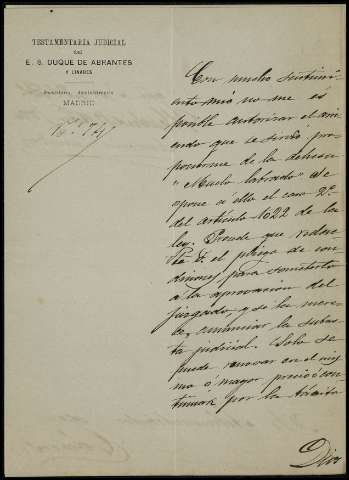 TESTAMENTARÍA JUDICIAL
del
E. S. DUQUE DE ABRANTES
Y LINARES
MADRID
Con mucho sentimi-
ento mio no me es
posible autorizar el arri-
endo que se sirve pro-
ponerme de la dehesa
"Macho labrado" Se
opone á ello el caso 2º
del artículo 1022 de la
ley. Puede que redac-
te V. el pliego de con-
diciones para someterlo
á la aprovacion del
juzgado, y si la mere-
ce, anunciar la subas-
ta judicial. Solo se
puede renovar en el mis-
mo ó mayor precio ó con-
tinuar por la tácita
Dios